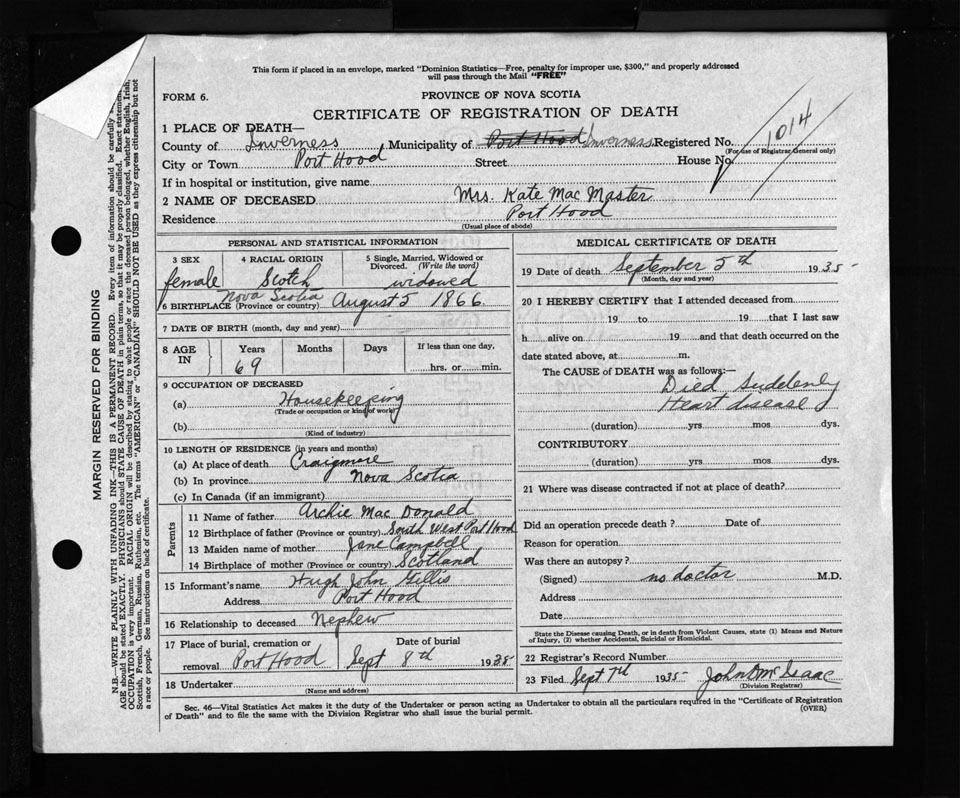 This form if placed in an envelope, marked "Dominion Statistics—Free, penalty for improper use, $300," and properly addressed
will pass through the Mail "FREE"
FORM 6.
PROVINCE OF NOVA SCOTIA
CERTIFICATE OF REGISTRATION OF DEATH
1014
1 PLACE OF DEATH—
County of Inverness Municipality of Port Hood Inverness Registered No.
(For use of Registrar General only)
City or Town Port Hood Street House No
If in hospital or institution, give name
2 NAME OF DECEASED Mrs. Kate Mac Master
Residence Port Hood
(Usual place of abode)
PERSONAL AND STATISTICAL INFORMATION
3 SEX 4 RACIAL ORIGIN 5 Single, Married, Widowed or
Divorced. (Write the word)
female Scotch widowed
Nova Scotia August 5 1866.
6 BIRTHPLACE (Province or country)
7 DATE OF BIRTH (month, day and year)
8 AGE IN Years Months Days If less than one day,
69 hrs. or min.
9 OCCUPATION OF DECEASED
(a) Housekeeping
(Trade or occupation or kind of work)
(b)
(Kind of industry)
10 LENGTH OF RESIDENCE (in years and months)
(a) At place of death Craigmore
(b) In province Nova Scotia
(c) In Canada (if an immigrant)
Parents
11 Name of father Archie Mac Donald
12 Birthplace of father (Province or country) South West Port Hood
13 Maiden name of mother Jane Campbell
14 Birthplace of mother (Province or country) Scotland
15 Informant's name Hugh John Gillis
Address Port Hood
16 Relationship to deceased Nephew
17 Place of burial, cremation or Date of burial
removal Port Hood Sept 8th 1935
18 Undertaker
(Name and address)
MEDICAL CERTIFICATE OF DEATH
19 Date of death September 5th 1935
(Month, day and year)
20 I HEREBY CERTIFY that I attended deceased from
19 to 19 that I last saw
h alive on 19 and that death occurred on the
date stated above, at m.
The CAUSE of DEATH was as follows:—
Died Suddenly
Heart disease
(duration) yrs mos dys.
CONTRIBUTORY
(duration) yrs mos dys.
21 Where was disease contracted if not at place of death?
Did an operation precede death ? Date of
Reason for operation
Was there an autopsy ?
(Signed) no doctor M.D.
Address
Date
State the Disease causing Death, or in death from Violent Causes, state (1) Means and Nature
of Injury, (2) whether Accidental, Suicidal or Homicidal.
22 Registrar's Record Number
23 Filed Sept 7th 1935 John Mc Isaac
(Division Registrar)
Sec. 46—Vital Statistics Act makes it the duty of the Undertaker or person acting as Undertaker to obtain all the particulars required in the "Certificate of Registration
of Death" and to file the same with the Division Registrar who shall issue the burial permit.
(OVER)
MARGIN RESERVED FOR BINDING
N.B.—WRITE PLAINLY WITH UNFADING INK—THIS IS A PERMANENT RECORD. Every item of information should be carefully
AGE should be stated EXACTLY. PHYSICIANS should STATE CAUSE OF DEATH in plain terms, so that it may be properly classified. Exact statement
OCCUPATION is very important. RACIAL ORIGIN will be described by stating to what people or race the deceased person belonged, whether English, Irish,
Scottish, French, German, Russian, Ruthenian, etc. The terms "AMERICAN" or "CANADIAN" SHOULD NOT BE USED as they express citizenship but not
a race or people. See instructions on back of certificate.